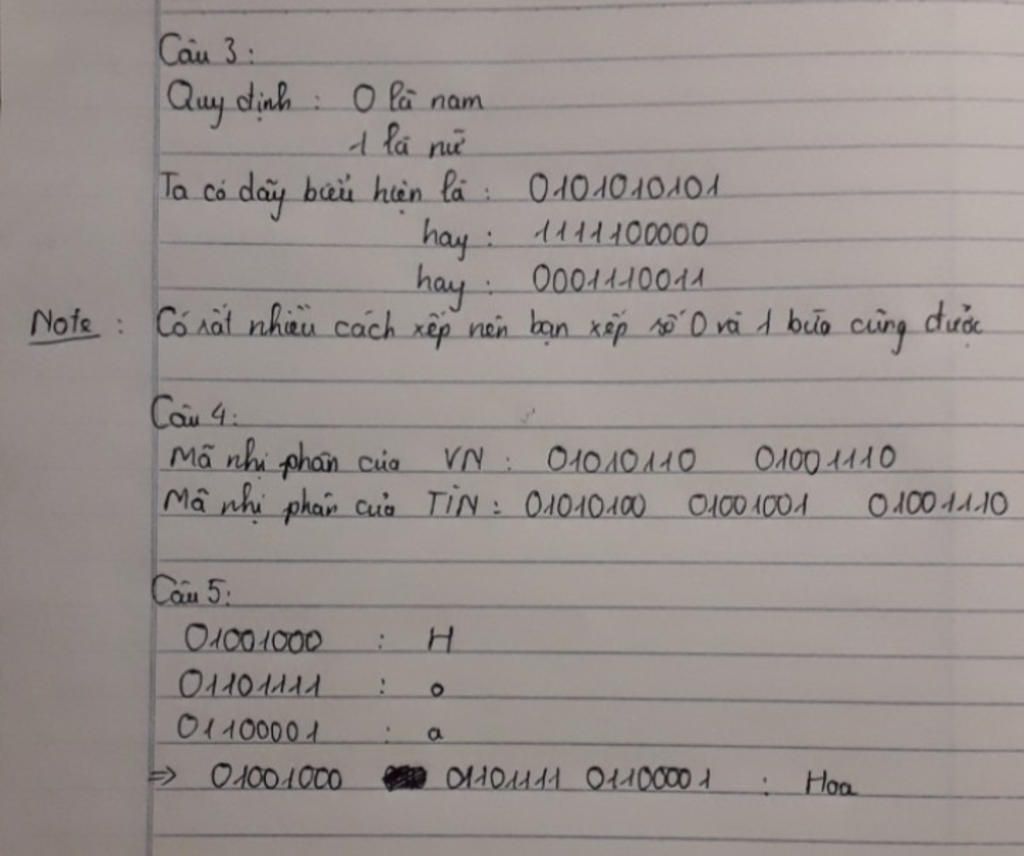 Câu 3:
Quy định : 0 là nam
1 là nữ
Ta có dãy biểu hiện là : 0101010101
hay : 1111100000
hay : 0001110011
Note : Có rất nhiều cách xếp nên bạn xếp số 0 và 1 bừa cũng được
Câu 4:
Mã nhị phân của VN : 01010110 01001110
Mã nhị phân của TIN : 01010100 01001001 01001110
Câu 5:
01001000 : H
01101111 : o
01100001 : a
=> 01001000 01101111 01100001 : Hoa